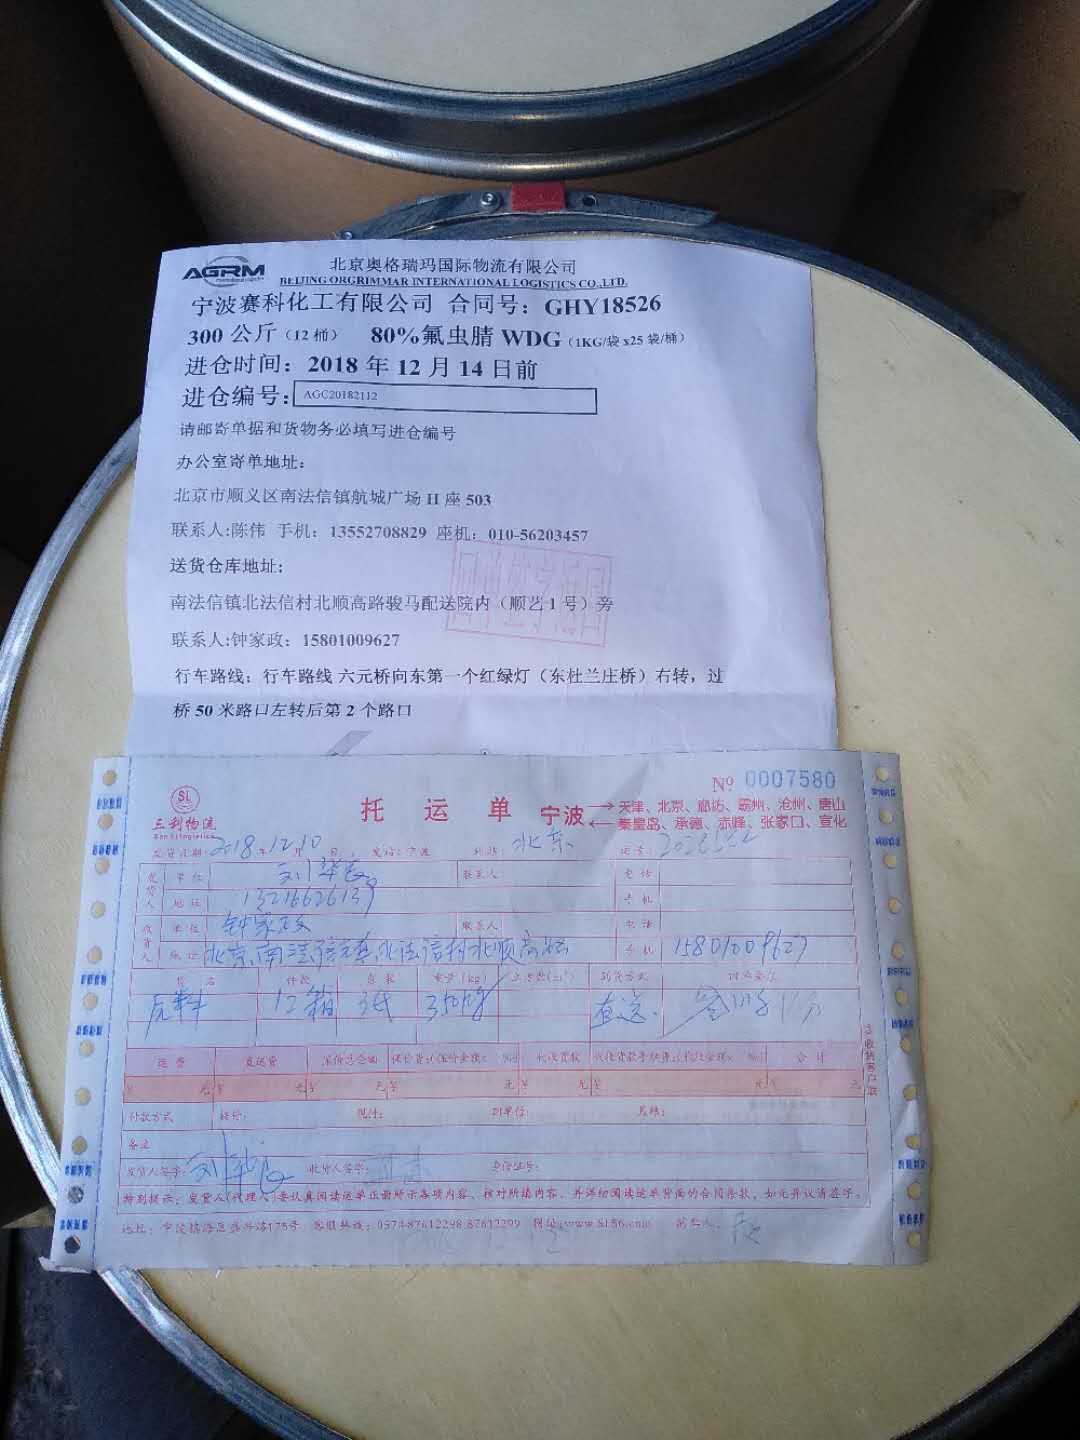 AGRM
北京奥格瑞玛国际物流有限公司
BEIJING ORGRIMMAR INTERNATIONAL LOGISTICS CO.,LTD.
宁波赛科化工有限公司 合同号：GHY18526
300 公斤（12 桶） 80%氟虫腈 WDG（1KG/袋 x25 袋/桶）
进仓时间：2018 年 12 月 14 日前
进仓编号：AGC20182112
请邮寄单据和货物务必填写进仓编号
办公室寄单地址：
北京市顺义区南法信镇航城广场 H 座 503
联系人:陈伟 手机：13552708829 座机：010-56203457
送货仓库地址：
南法信镇北法信村北顺高路骏马配送院内（顺艺 1 号）旁
联系人:钟家政：15801009627
行车路线：行车路线 六元桥向东第一个红绿灯（东杜兰庄桥）右转，过
桥 50 米路口左转后第 2 个路口
SL
三利物流
托运单 宁波
天津、北京、廊坊、霸州、沧州、唐山
秦皇岛、承德、赤峰、张家口、宣化
№ 0007580
发货日期：2018年12月10日 发站：宁波 到站：北京 运号：
发货人 单位 联系人 电话
地址 13216626139 手机
收货人 单位 钟家政 联系人 电话
地址 北京南法信镇北法信村北顺高路 手机 15801009627
货名 件数 包装 重量(kg) 立方数(m³) 到货方式
12箱 纸 350kg 直送
运费 直送费 保价总金额 保价费 代收货款 合计
¥ 元 ¥ 元 ¥ 元 ¥ 元 ¥ 元 ¥ 元 ¥ 元
付款方式 现付： 到单位： 月结：
备注
发货人签字： 收货人签字： 身份证号：
特别提示：发货人(代理人)要认真阅读运单正面所示各项内容、核对所填内容、并详细阅读运单背面的合同条款，如无异议请签字。
地址：宁波镇海区 路175号 客服热线：0574-87612298 87612299 网址:www.Sl56.com 制单人：
③收货客户联